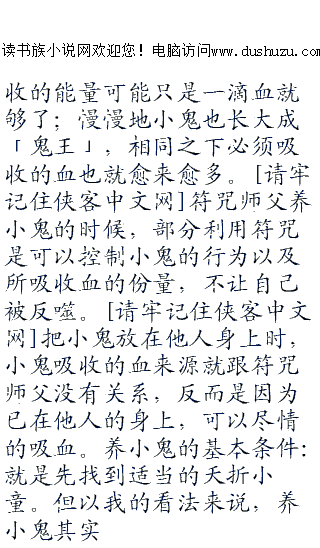 读书族小说网欢迎您！电脑访问www.dushuzu.com
收的能量可能只是一滴血就
够了；漫漫地小鬼也长大成
「鬼王」，相同之下必须吸
收的血也就愈来愈多。[请牢
记住侠客中文网]符咒师父养
小鬼的时候，部分利用符咒
是可以控制小鬼的行为以及
所吸收血的份量，不让自己
被反噬。[请牢记住侠客中文
网]把小鬼放在他人身上时，
小鬼吸收的血来源就跟符咒
师父没有关系，反而是因为
已在他人的身上，可以尽情
的吸血。养小鬼的基本条件:
就是先找到适当的夭折小
童。但以我的看法来说，养
小鬼其实